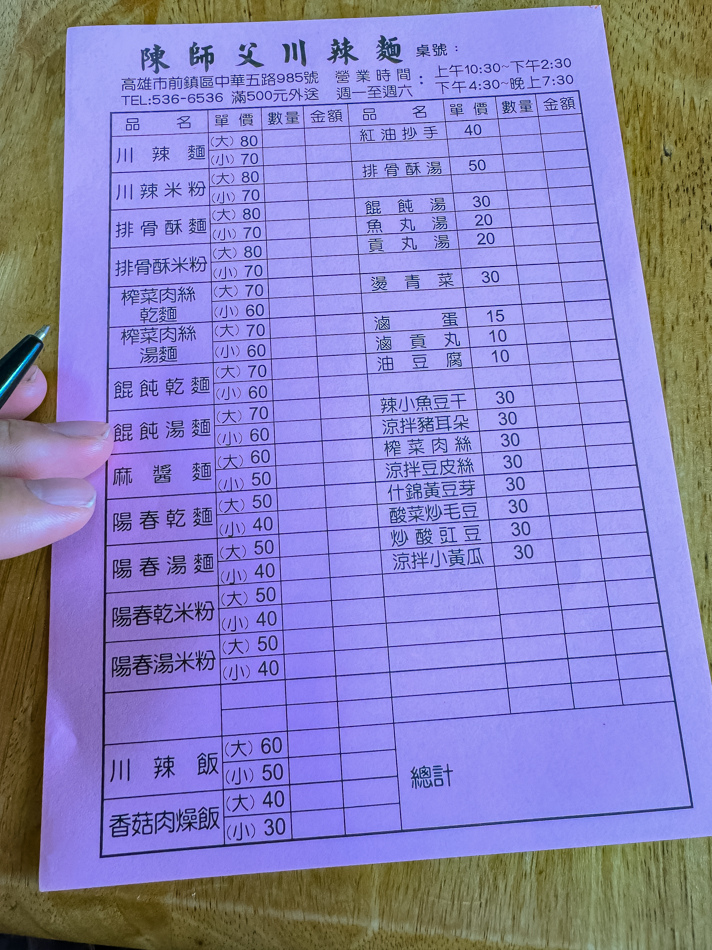 陳師父川辣麵 桌號：
高雄市前鎮區中華五路985號 營業時間：上午10:30~下午2:30
TEL:536-6536 滿500元外送 週一至週六 下午4:30~晚上7:30
品名 單價 數量 金額
川辣麵 (大) 80
(小) 70
川辣米粉 (大) 80
(小) 70
排骨酥麵 (大) 80
(小) 70
排骨酥米粉 (大) 80
(小) 70
榨菜肉絲乾麵 (大) 70
(小) 60
榨菜肉絲湯麵 (大) 70
(小) 60
餛飩乾麵 (大) 70
(小) 60
餛飩湯麵 (大) 70
(小) 60
麻醬麵 (大) 60
(小) 50
陽春乾麵 (大) 50
(小) 40
陽春湯麵 (大) 50
(小) 40
陽春乾米粉 (大) 50
(小) 40
陽春湯米粉 (大) 50
(小) 40
川辣飯 (大) 60
(小) 50
香菇肉燥飯 (大) 40
(小) 30
品名 單價 數量 金額
紅油抄手 40
排骨酥湯 50
餛飩湯 30
魚丸湯 20
貢丸湯 20
燙青菜 30
滷蛋 15
滷貢丸 10
油豆腐 10
辣小魚豆干 30
涼拌豬耳朵 30
榨菜肉絲 30
涼拌豆皮絲 30
什錦黃豆芽 30
酸菜炒毛豆 30
炒酸豇豆 30
涼拌小黃瓜 30
總計